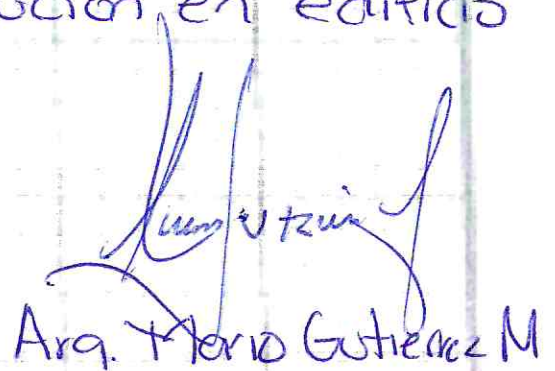 ución en edificio
Arq. Mario Gutierrez M